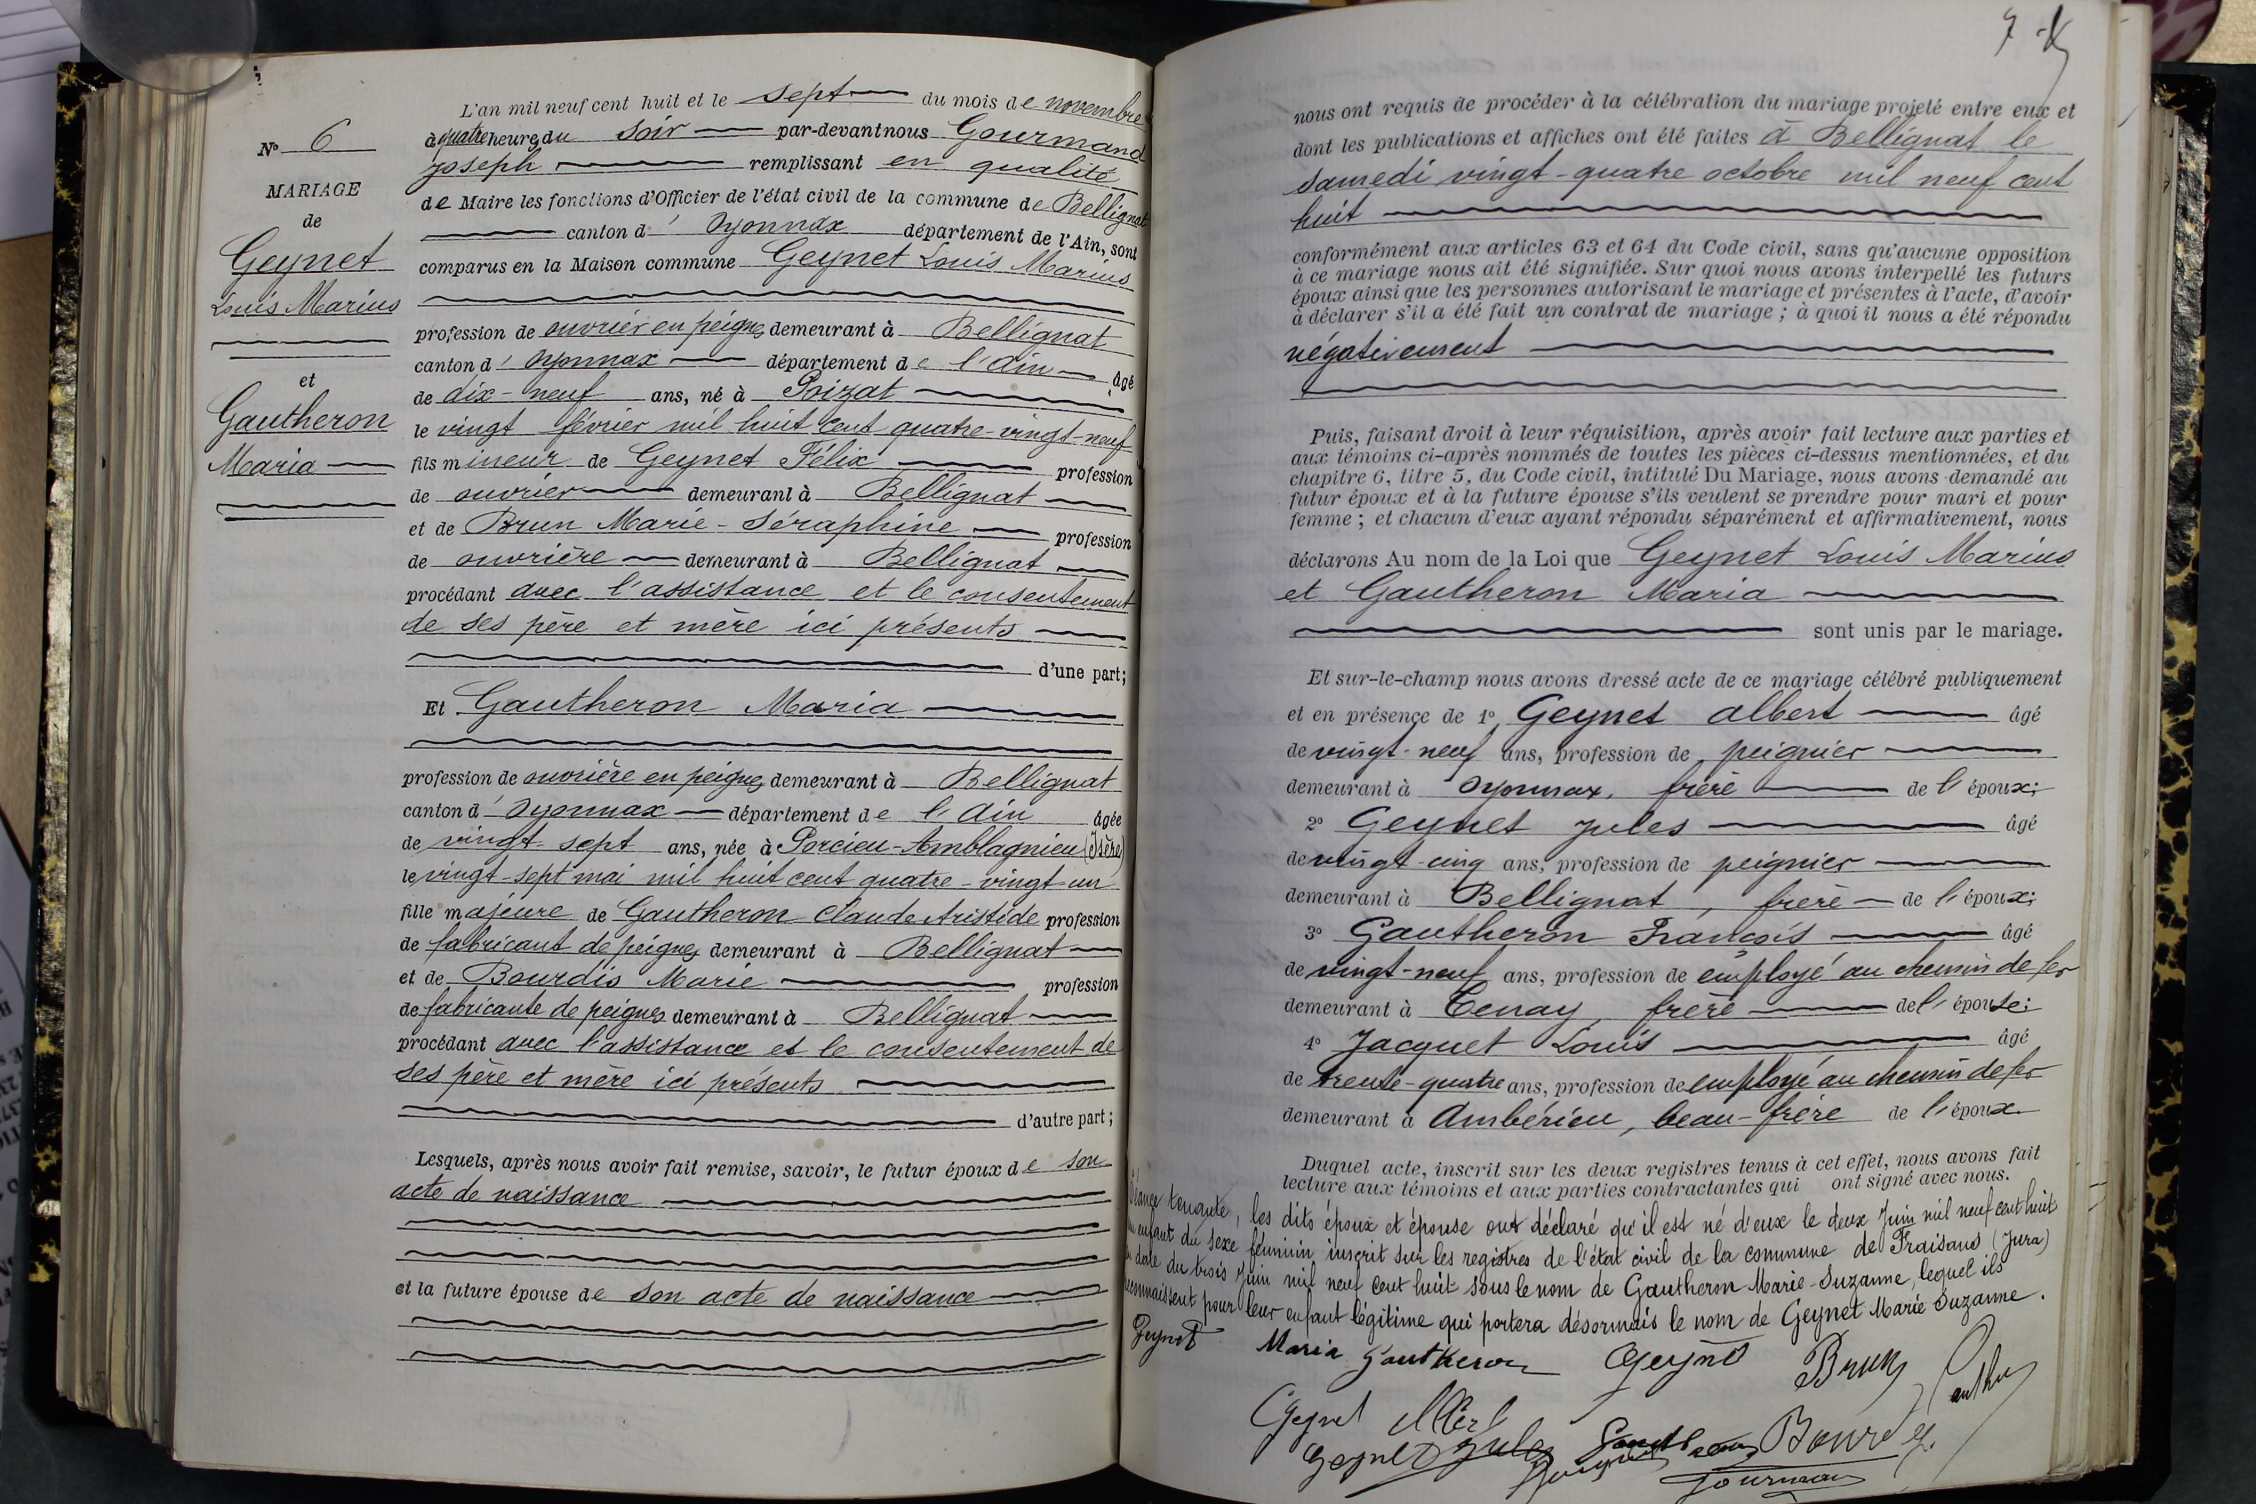 L'an mil neuf cent huit et le sept du mois de novembre
à quatre heures du soir par-devant nous Gourmand
Joseph remplissant en qualité
de Maire les fonctions d'Officier de l'état civil de la commune de Bellignat
canton d'Oyonnax département de l'Ain, sont
comparus en la Maison commune Geynet Louis Marius
profession de ouvrier en peignes demeurant à Bellignat
canton d'Oyonnax département de l'Ain âgé
de dix-neuf ans, né à Poizat
le vingt février mil huit cent quatre-vingt-neuf
fils mineur de Geynet Félix profession
de ouvrier demeurant à Bellignat
et de Brun Marie-Séraphine profession
de ouvrière demeurant à Bellignat
procédant avec l'assistance et le consentement
de ses père et mère ici présents
d'une part;
Et Gautheron Maria
profession de ouvrière en peignes demeurant à Bellignat
canton d'Oyonnax département de l'Ain âgée
de vingt-sept ans, née à Porcieu-Amblagnieu (Isère)
le vingt-sept mai mil huit cent quatre-vingt-un
fille majeure de Gautheron Claude Aristide profession
de fabricant de peignes demeurant à Bellignat
et de Bourdis Marie profession
de fabricante de peignes demeurant à Bellignat
procédant avec l'assistance et le consentement de
ses père et mère ici présents
d'autre part;
Lesquels, après nous avoir fait remise, savoir, le futur époux de son
acte de naissance
et la future épouse de son acte de naissance
N° 6
MARIAGE
de
Geynet
Louis Marius
et
Gautheron
Maria
7
nous ont requis de procéder à la célébration du mariage projeté entre eux et
dont les publications et affiches ont été faites à Bellignat le
samedi vingt-quatre octobre mil neuf cent
huit
conformément aux articles 63 et 64 du Code civil, sans qu'aucune opposition
à ce mariage nous ait été signifiée. Sur quoi nous avons interpellé les futurs
époux ainsi que les personnes autorisant le mariage et présentes à l'acte, d'avoir
à déclarer s'il a été fait un contrat de mariage ; à quoi il nous a été répondu
négativement
Puis, faisant droit à leur réquisition, après avoir fait lecture aux parties et
aux témoins ci-après nommés de toutes les pièces ci-dessus mentionnées, et du
chapitre 6, titre 5, du Code civil, intitulé Du Mariage, nous avons demandé au
futur époux et à la future épouse s'ils veulent se prendre pour mari et pour
femme ; et chacun d'eux ayant répondu séparément et affirmativement, nous
déclarons Au nom de la Loi que Geynet Louis Marius
et Gautheron Maria
sont unis par le mariage.
Et sur-le-champ nous avons dressé acte de ce mariage célébré publiquement
et en présence de 1° Geynet albert âgé
de vingt-neuf ans, profession de peignier
demeurant à Oyonnax, frère de l'époux;
2° Geynet Jules âgé
de vingt-cinq ans, profession de peignier
demeurant à Bellignat, frère de l'époux;
3° Gautheron François âgé
de vingt-neuf ans, profession de employé au chemin de fer
demeurant à Tenay, frère de l'épouse;
4° Jacquet Louis âgé
de trente-quatre ans, profession de employé au chemin de fer
demeurant à Ambérieu, beau-frère de l'époux
Duquel acte, inscrit sur les deux registres tenus à cet effet, nous avons fait
lecture aux témoins et aux parties contractantes qui ont signé avec nous.
tenante, les dits époux et épouse ont déclaré qu'il est né d'eux le deux Juin mil neuf cent huit
enfant du sexe féminin inscrit sur les registres de l'état civil de la commune de Fraisans (Jura)
date du trois Juin mil neuf cent huit sous le nom de Gautheron Marie-Suzanne, lequel ils
reconnaissent pour leur enfant légitime qui portera désormais le nom de Geynet Marie Suzanne.
Geynet Maria Gautheron Geynet Brun
Geynet Albert
Geynet Jules